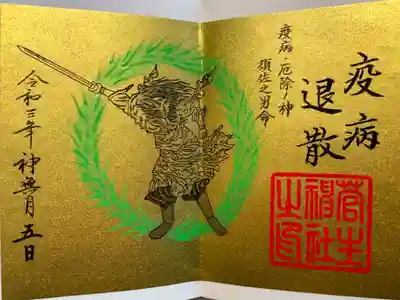 疫病
退散
疫病・厄除ノ神
須佐之男命
菅生
神社
之印
令和三年神無月五日